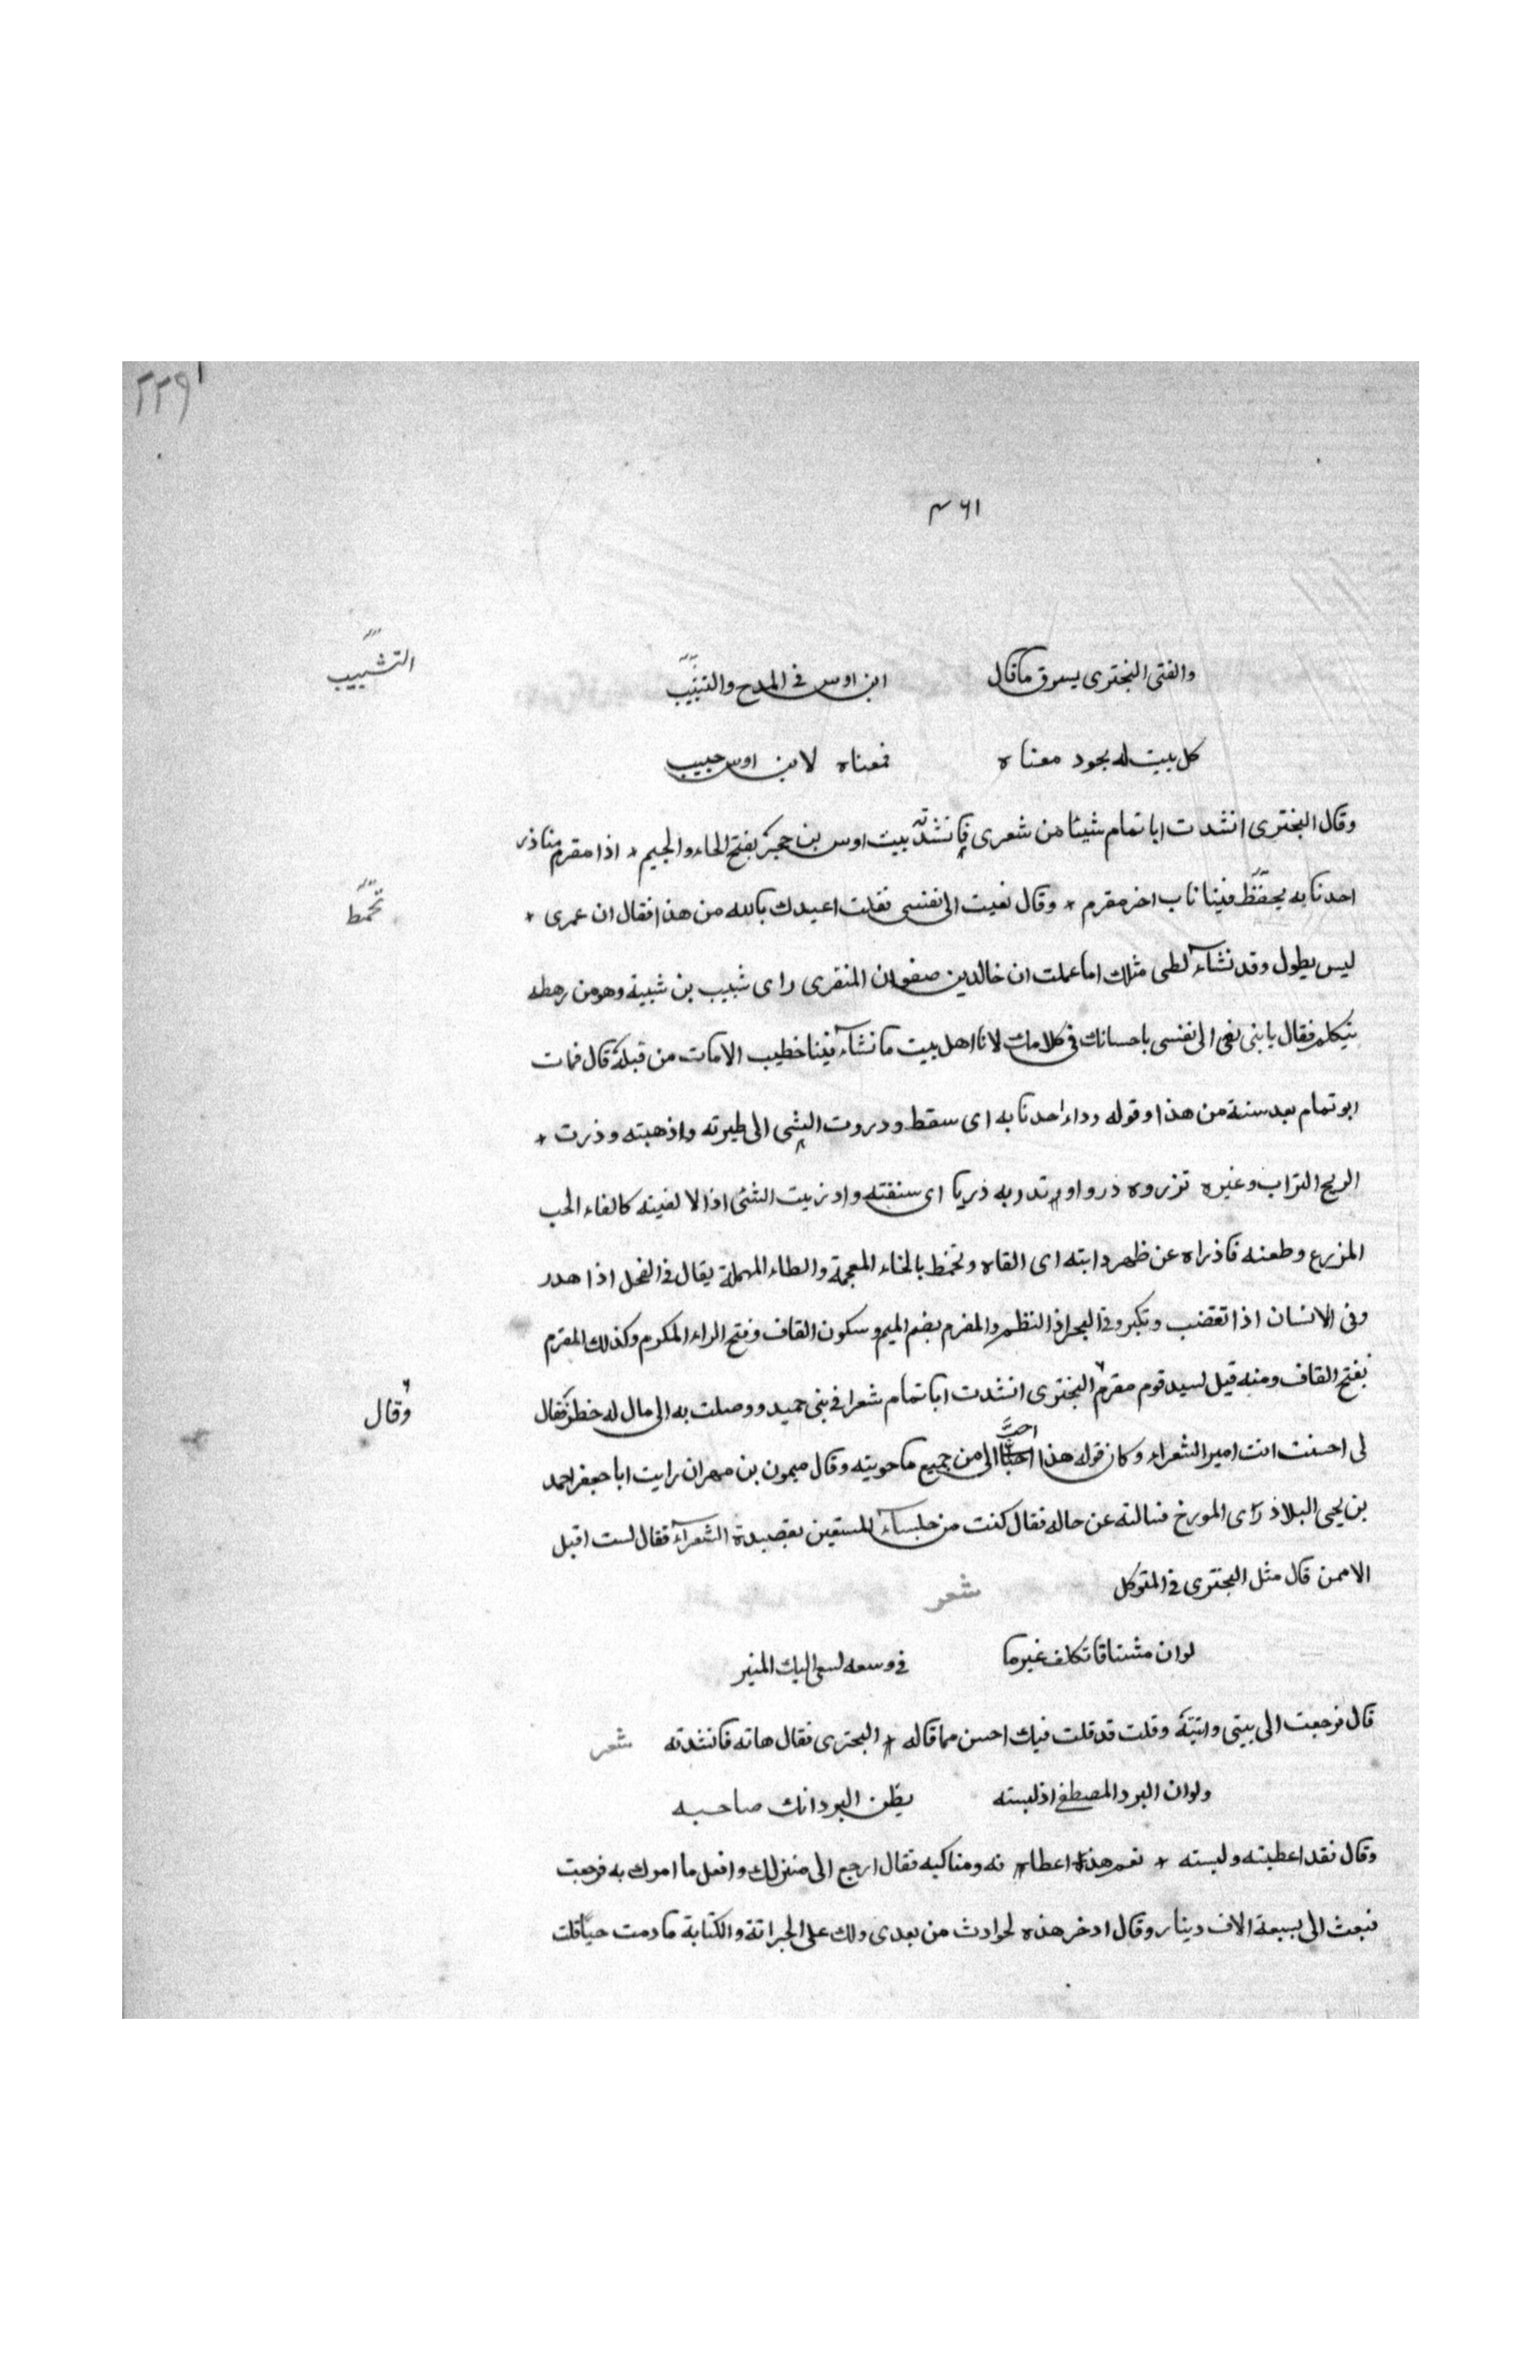 ٢٢٩
٤٦١
والفتى البحترى يسرق ماقال ابن اوس فى المدح والتبيب
التشبيب
كل بيت له يجود معناه فمعناه لابن اوس حبيب
وقال البحترى انشدت اباتمام شيئا من شعرى فانشدنى بيت اوس بن حجر بفتح الحاء والجيم * اذا مقرم منا ذر
احدنابه يحفظ فينا ناب اخر مقرم * وقال نعيت الى نفسى فقلت اعيدك بالله من هذا فقال ان عمرى *
تخمط
ليس يطول وقد نشاء لطى مثلك اما عملت ان خالدبن صفوان المنقرى راى شبيب بن شبية وهو من رهطه
يتكلم فقال يابنى نعى الى نفسى باحسانك فى كلامك لانا اهل بيت مانشاء فينا خطيب الامات من قبله قال فمات
ابو تمام بعد سنة من هذا وقوله رداء احدنابه اى سقط ودروت الشى الى طيرته واذهبته وذرت *
الريح التراب وغيره تزروه ذروا و تدربه ذريا اى سنفته واد زيت الشئ اذا لا لفيته كالفاء الحب
المزرع وطعنه فاذراه عن ظهر دابته اى القاه وتخمط بالخاء المعجمة والطاء المهملة يقال فى الفحل اذا هدر
وفى الانسان اذا تغضب وتكبر وفى البحر اذ النظم والمقرم بضم الميم وسكون القاف وفتح الراء المكرم وكذلك المقرم
بفتح القاف ومنه قيل لسيد قوم مقرم البحترى انشدت اباتمام شعرا فى بنى حميد ووصلت به الى مال له خطر فقال
وقال
لى احسنت انت امير الشعراء وكان قوله هذا احب الى من جميع ماحويته وقال ميمون بن مهران رايت اباجعفر احمد
بن يحيى البلاذرى المورخ فسالته عن حاله فقال كنت من جلساء المستعين بقصيدة الشعراء فقال لست اقبل
الاممن قال مثل البحترى فى المتوكل شعر
لوان مشتاقا تكلف غيرما فى وسعه لسعى اليك المنبر
قال فرجعت الى بيتى واتيته وقلت قد قلت فيك احسن مما قاله البحترى فقال هاته فانشدته شعر
ولوان البرد المصطفى اذ لبسته يظن البرد انك صاحبه
وقال نقد اعطيته ولبسته * نعم هذه اعطا فه ومناكبه فقال ارجع الى منزلك وافعل ما امرك به فرجعت
فبعث الى بسبعة الاف دينار وقال ادخر هذه لحوادث من بعدى ولك على الجراتة والكتابة مادمت حيا قلت